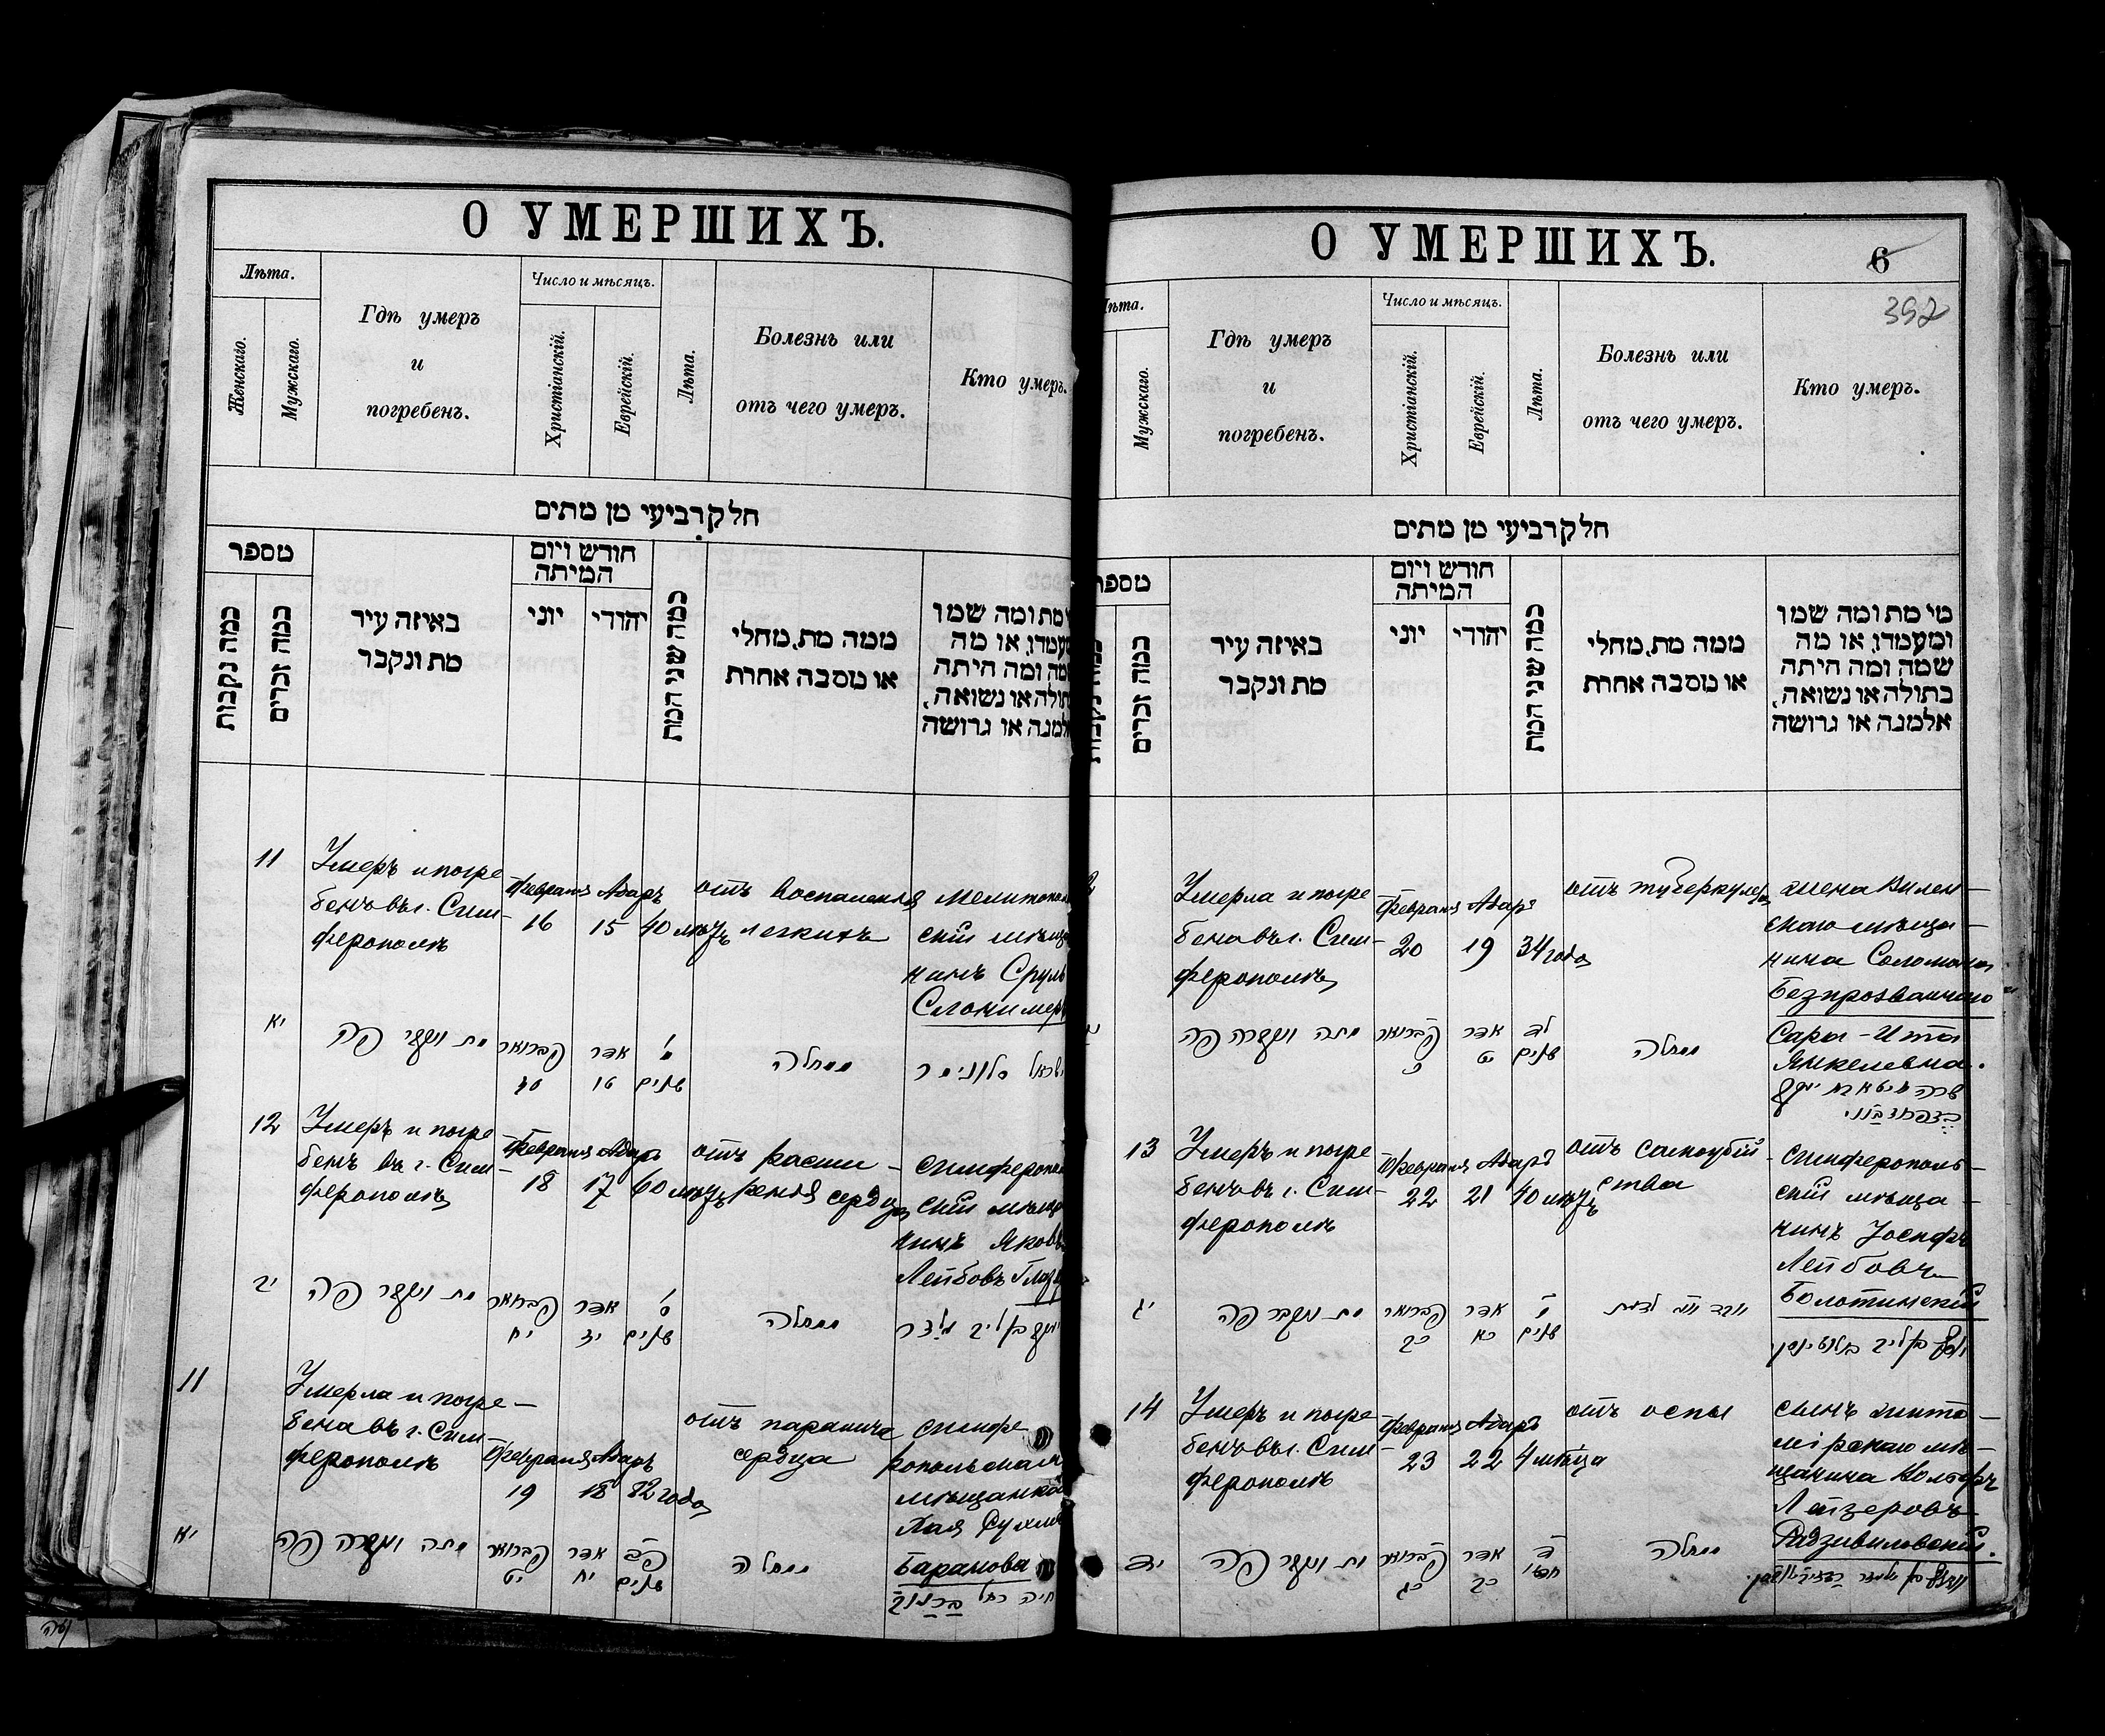 О УМЕРШИХЪ.
Лѣта.
Женскаго.
Мужскаго.
Гдѣ умеръ
и
погребенъ.
Число и мѣсяцъ.
Христіанскій.
Еврейскій.
Лѣта.
Болезнь или
отъ чего умеръ.
Кто умеръ.
חלק רביעי מן מתים
מספר
כמה נקבות
כמה זכרים
באיזה עיר
מת ונקבר
חודש ויום
המיתה
יוני
יהודי
כמה שני המת
ממה מת, מחלי
או מסבה אחרת
מת ומה שמו
ומעמדו, או מה
שמה ומה היתה
בתולה או נשואה,
אלמנה או גרושה
11
Умеръ и погре
бенъ въ г. Сим-
ферополѣ
Февраля
16
Адаръ
15
40 лѣтъ
отъ воспаленія
легкихъ
Мелитополь
скій мѣща
нинъ Сруль
Слонимеръ
יא
מת ונקבר פה
פברואר
אדר
טו
מ'
שנים
מחלה
ישראל סלונימר
12
Умеръ и погре
бенъ въ г. Сим-
ферополѣ
Февраля
18
Адаръ
17
60 лѣтъ
отъ расши-
ренія сердца
Симферополь
скій мѣща
нинъ Яковъ
Лейбовъ
יב
מת ונקבר פה
פברואר
יח
אדר
יז
ס'
שנים
מחלה
11
Умерла и погре-
бена въ г. Сим-
ферополѣ
Февраля
19
Адаръ
18
82 года
отъ паралича
сердца
Симфе
ропольская
мѣщанка
Хая
Баранова
יא
מתה ונקברה פה
פברואר
יט
אדר
יח
פב
שנים
מחלה
חיה רחל
О УМЕРШИХЪ.
6
392
Лѣта.
Мужскаго.
Гдѣ умеръ
и
погребенъ.
Число и мѣсяцъ.
Христіанскій.
Еврейскій.
Лѣта.
Болезнь или
отъ чего умеръ.
Кто умеръ.
חלק רביעי מן מתים
מספר
כמה זכרים
באיזה עיר
מת ונקבר
חודש ויום
המיתה
יוני
יהודי
כמה שני המת
ממה מת, מחלי
או מסבה אחרת
מי מת ומה שמו
ומעמדו, או מה
שמה ומה היתה
בתולה או נשואה,
אלמנה או גרושה
Умерла и погре
бена въ г. Сим-
ферополѣ
Февраля
20
Адаръ
19
34 года
отъ туберкулеза
жена Вилен-
скаго мѣща-
нина Соломона
Безпрозваннаго
Сара-Ита
Янкелевна.
מתה ונקברה פה
פברואר
כ
אדר
יט
לד
שנים
מחלה
13
Умеръ и погре
бенъ въ г. Сим-
ферополѣ
Февраля
22
Адаръ
21
40 лѣтъ
отъ самоубій-
ства
Симферополь-
скій мѣща-
нинъ Іосифъ
Лейбовъ
Болотинскій
יג
מת ונקבר פה
פברואר
כב
אדר
כא
מ
שנים
יוסף בן ליב
14
Умеръ и погре
бенъ въ г. Сим-
ферополѣ
Февраля
23
Адаръ
22
4 мѣсяца
отъ оспы
сынъ Жито-
мірскаго мѣ-
щанина
Лейзеровъ
Радзивиловскій.
יד
מת ונקבר פה
פברואר
כג
אדר
כב
ד
חדשי
מחלה